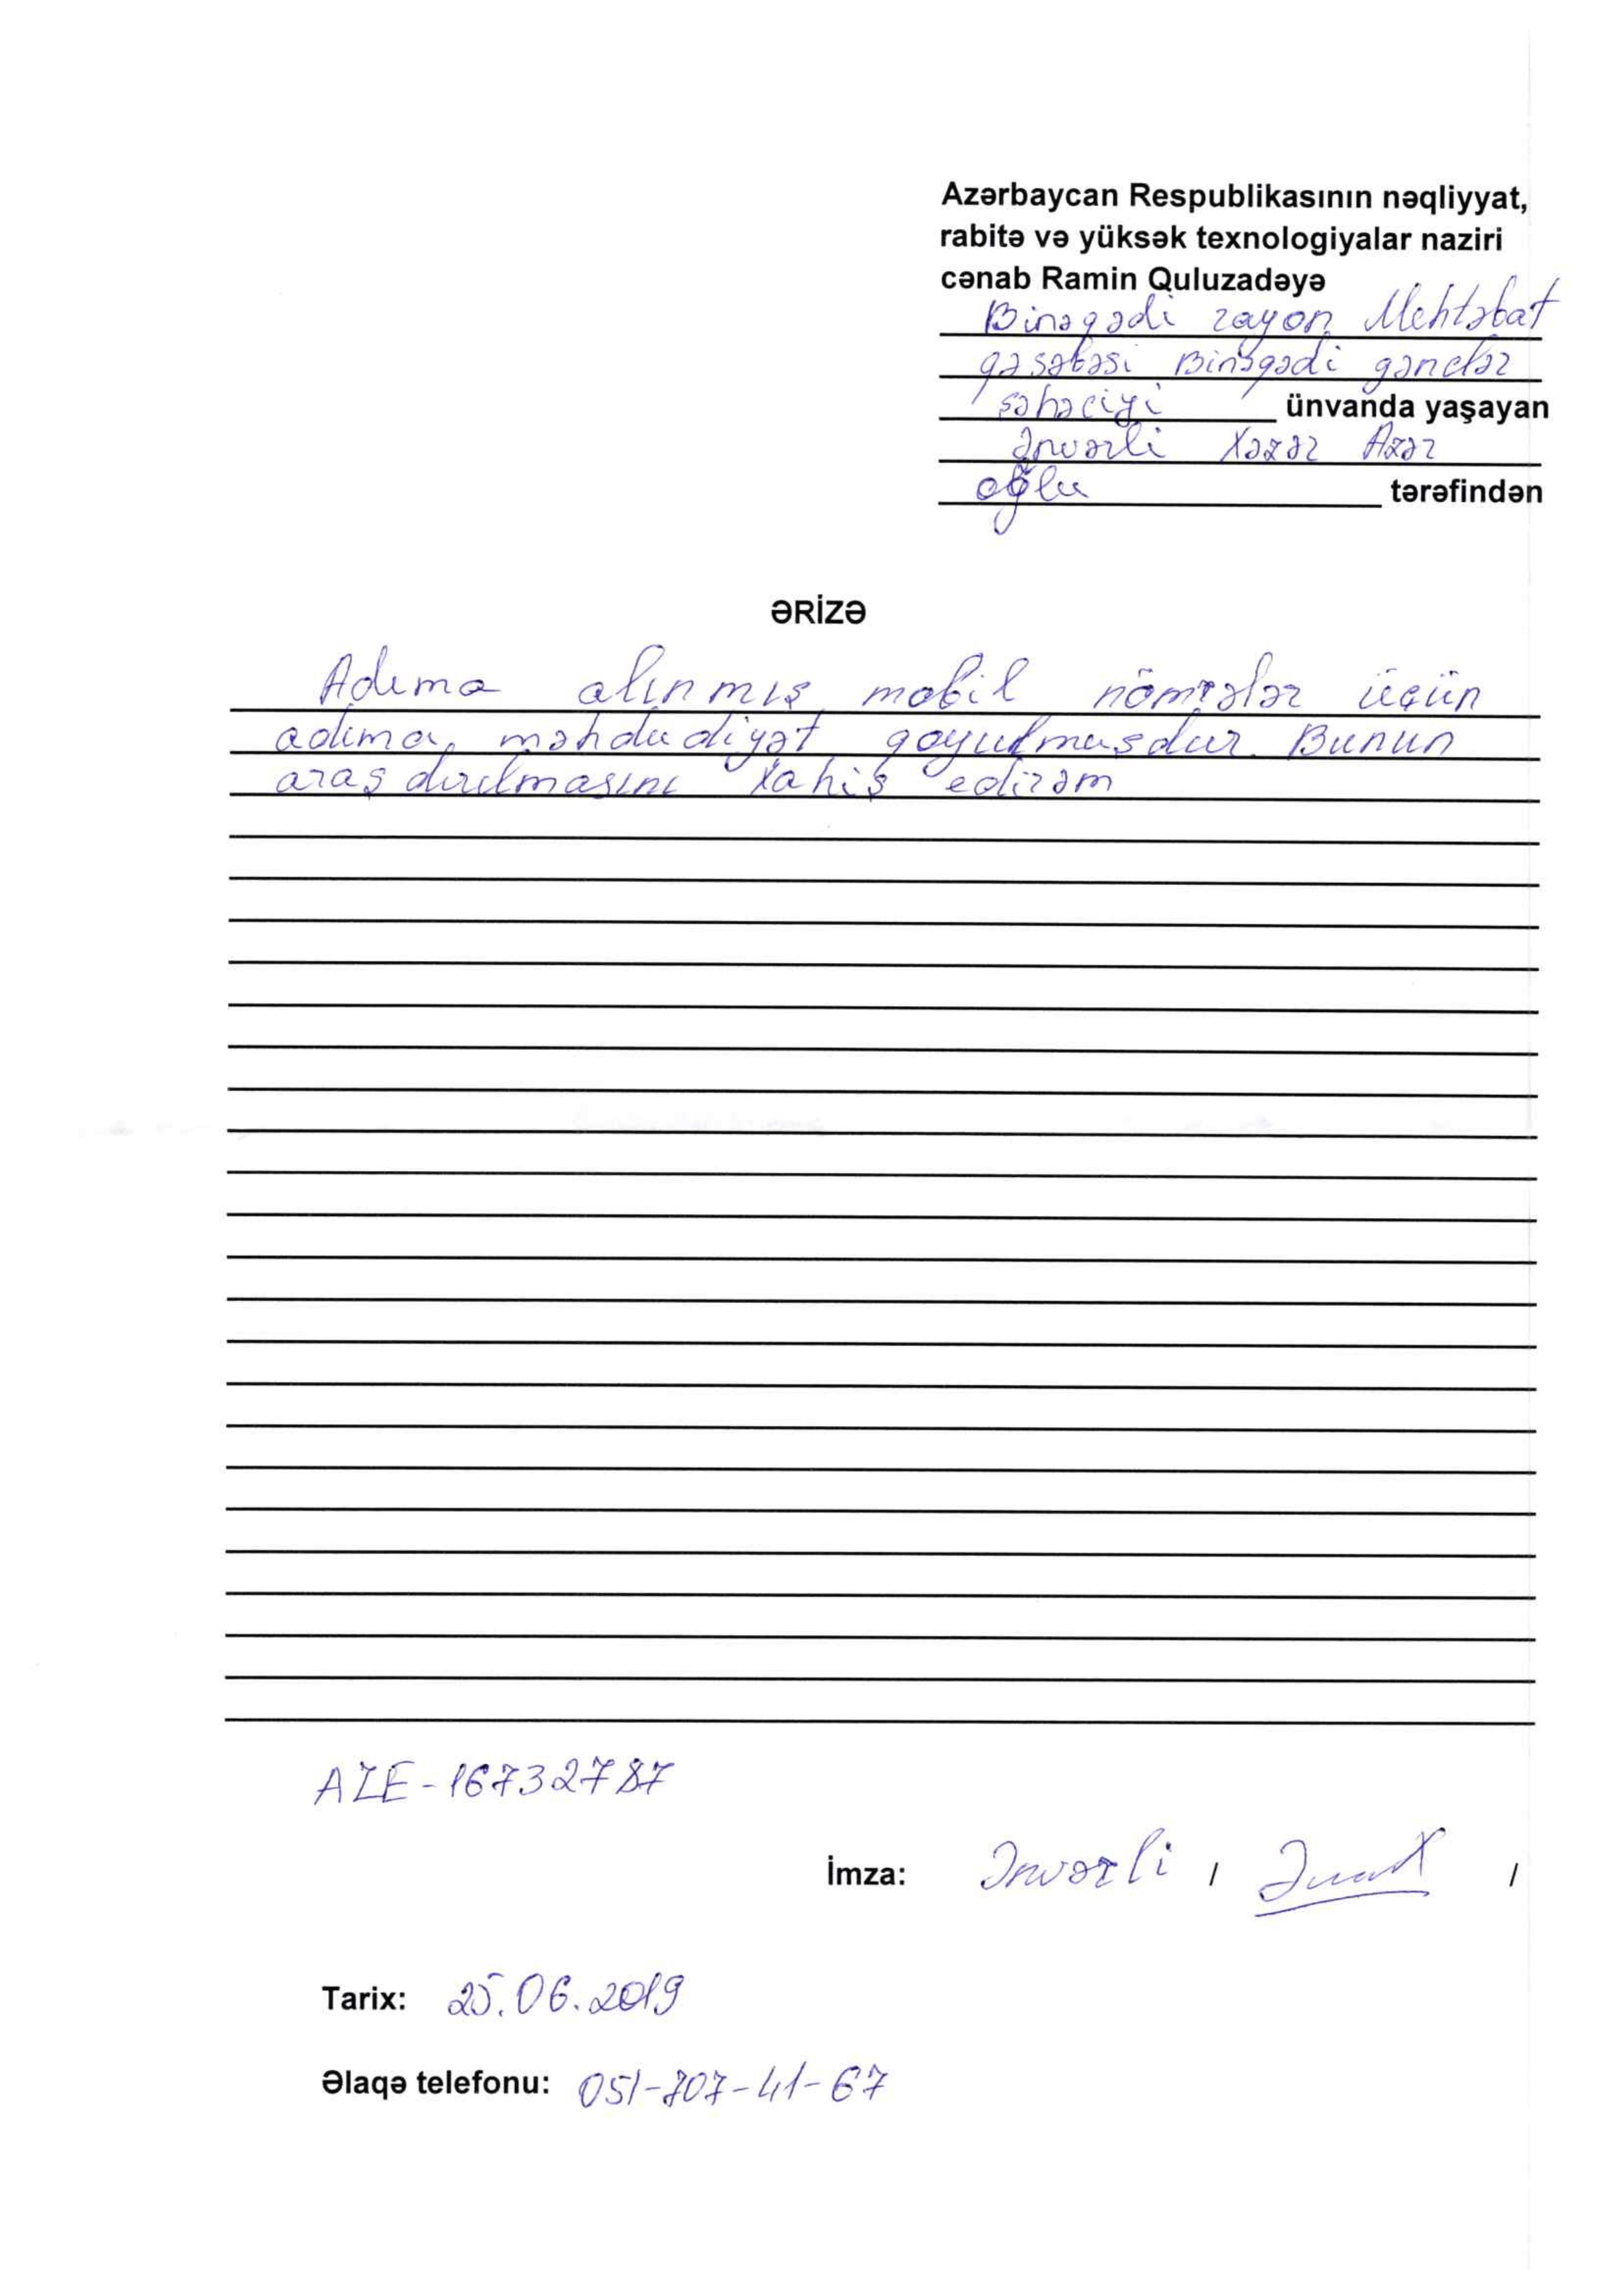 Azərbaycan Respublikasının nəqliyyat,
rabitə və yüksək texnologiyalar naziri
cənab Ramin Quluzadəyə
Binəqədi rayon Mehtəbat
qəsəbəsi Binəqədi gənclər
şəhəciyi ünvanda yaşayan
Ənvərli Xəzər Azər
oğlu tərəfindən
ƏRİZƏ
Adıma alınmış mobil nömrələr üçün
adıma məhdudiyət qoyulmuşdur. Bunun
araşdırılmasını xahiş edirəm
AZE-16732787
İmza: Ənvərli / /
Tarix: 25.06.2019
Əlaqə telefonu: 051-707-41-67